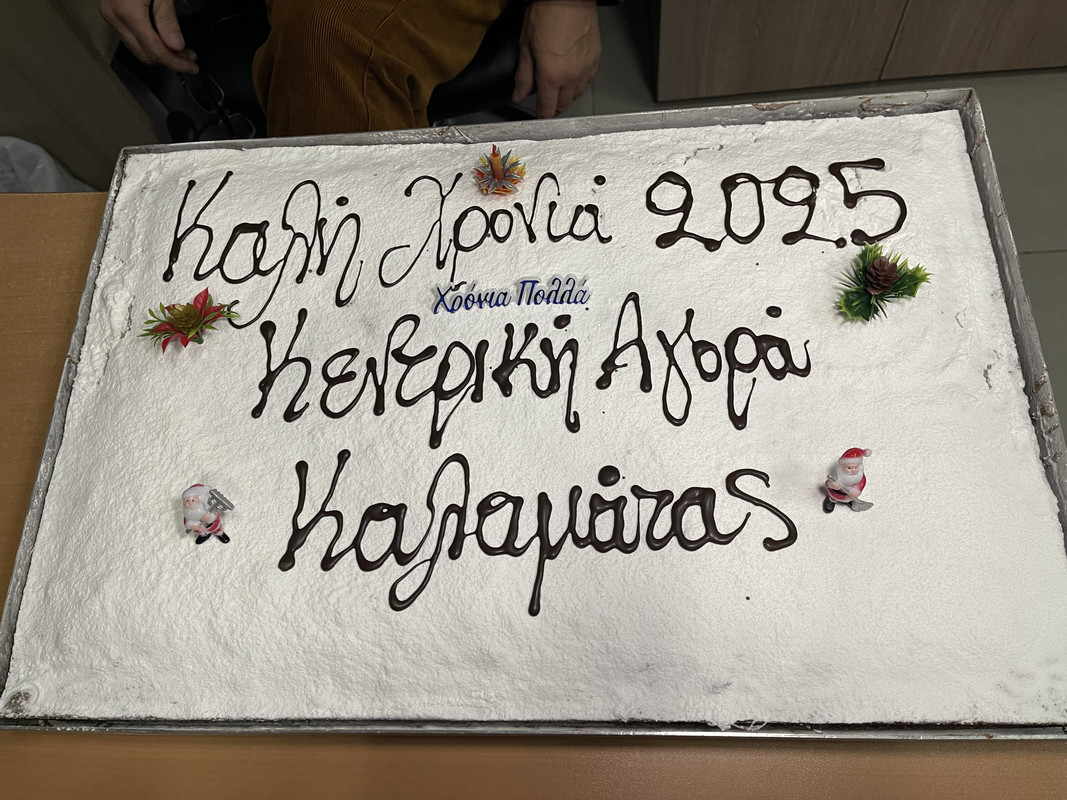 Καλή Χρονιά 2025
Χρόνια Πολλά
Κεντρική Αγορά
Καλαμάτας